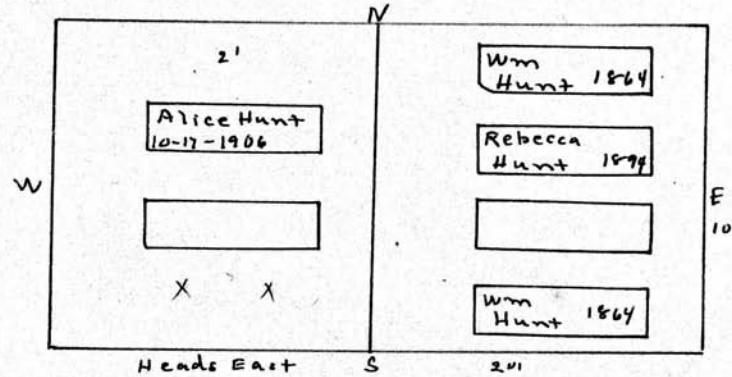 N
2'
Wm
Hunt 1864
Alice Hunt
10-17-1906
Rebecca
Hunt 1894
W
E
10
X X
Wm
Hunt 1864
Heads East S